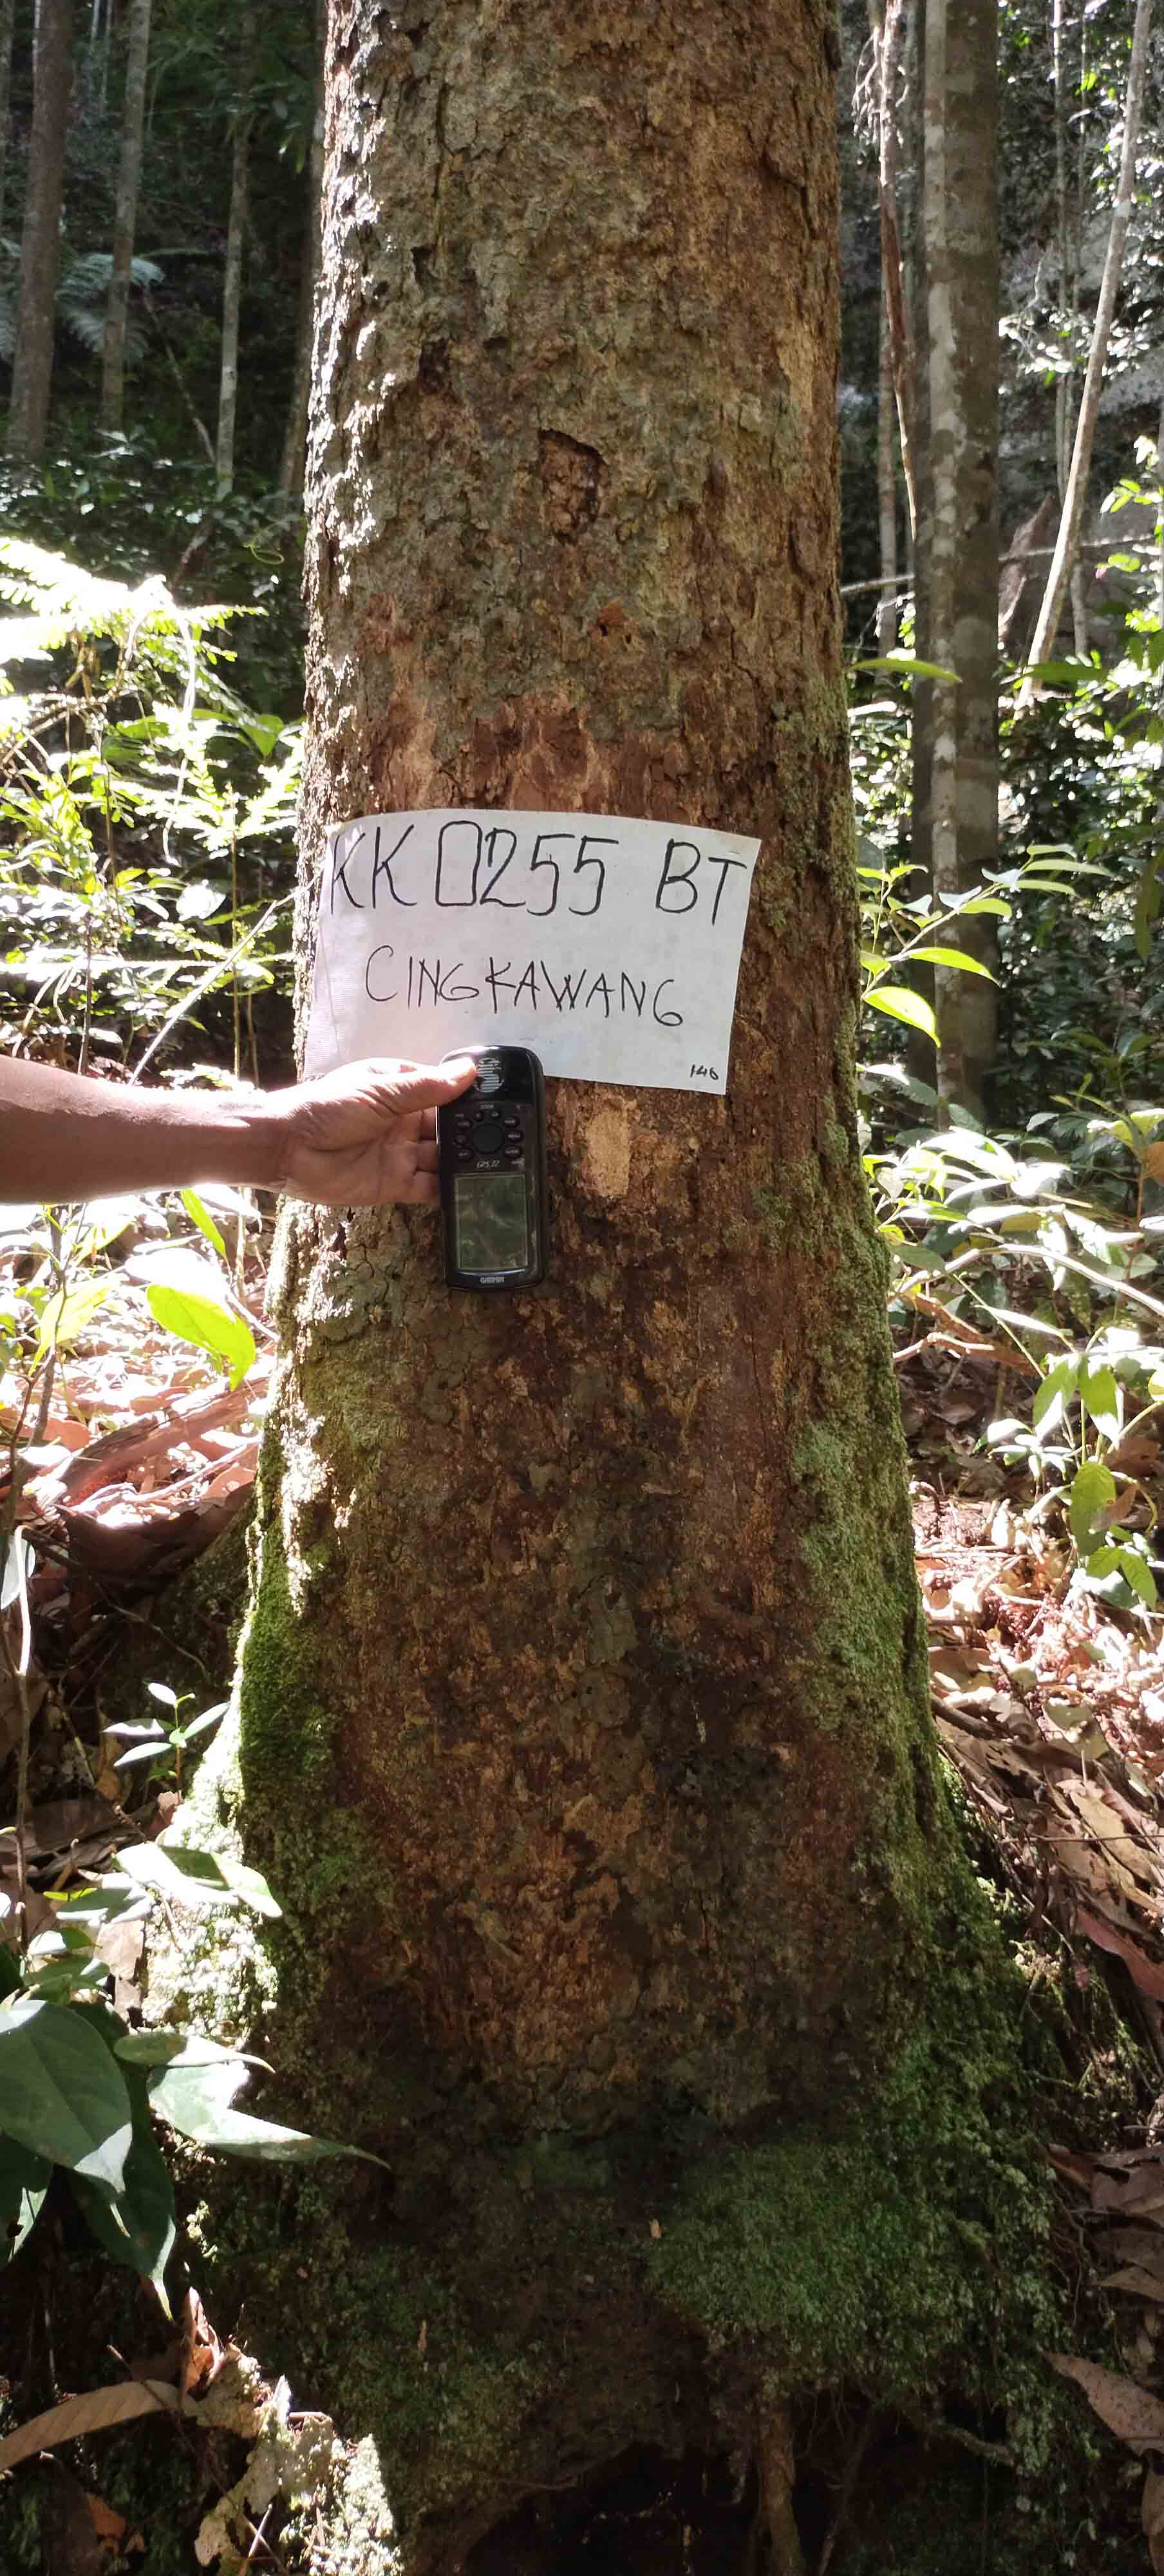 KK 0255 BT
CINGKAWANG
146
GPS 72
GARMIN